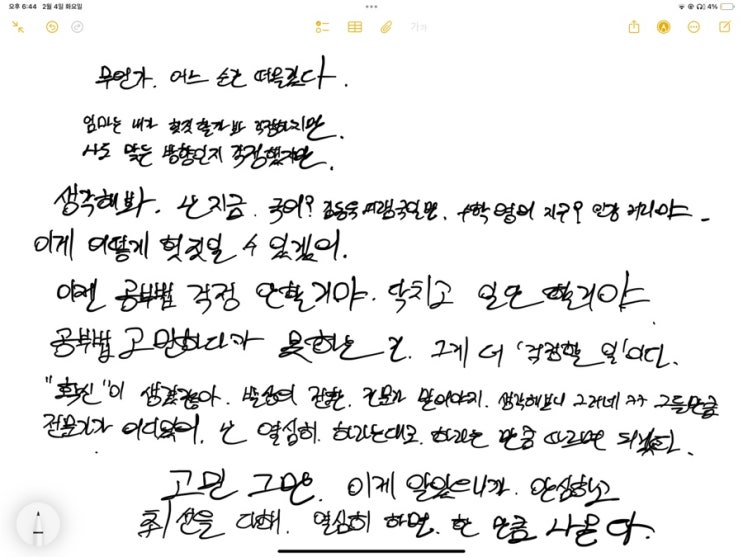 오후 6:44 2월 4일 화요일
4%
무언가. 어느 순간 떠올랐다.
엄마는 내가 헛짓할까봐 걱정하지만.
나도 맞는 방향인지 걱정했지만.
생각해봐. 난 지금. 국어? 김동욱 국일만. 수학 영어 지구? 인강 커리야.
이게 어떻게 헛짓일 수 있겠어.
이젠 공부법 걱정 안할거야. 닥치고 일단 할거야
공부법 고민하다가 못하는 건. 그게 더 '걱정할 일'이다.
"확신"이 생겼잖아. 발상의 전환. 전문가 말이야지. 생각해보니 그러네 ㅋㅋ 그들만큼
전문가가 어디있어. 난 열심히. 하라는대로. 하라는 만큼 따르면 되겠다.
고민 그만. 이게 알았으니까. 안심하고
최선을 다해. 열심히 하면. 한 만큼 나온다.